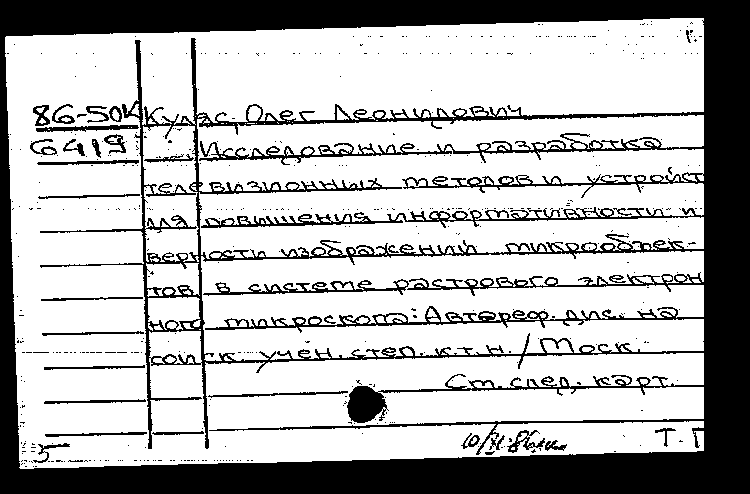 86-50К Куляс, Олег Леонидович
6419 Исследование и разработка
телевизионных методов и устройст
для повышения информативности и
верности изображений микрообъек-
тов в системе растрового электрон
ного микроскопа: Автореф. дис. на
соиск. учен. степ. к.т.н. / Моск.
Ст. след. карт.
Т. Г
5